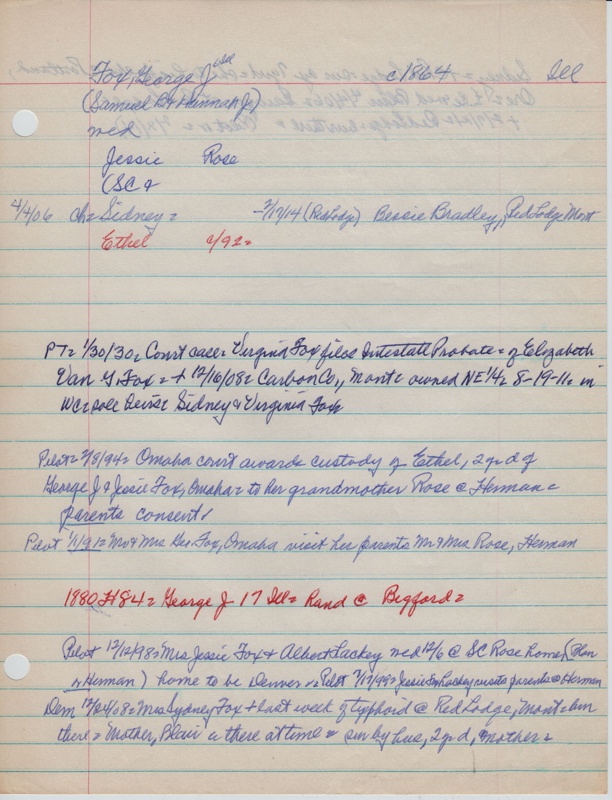 Fox, George J c1864 Ill
(Samuel B & Hannah J)
wed
Jessie Rose
(SC &
4/4/06 ch = Sidney = -7/17/14 (Red Lodge) Bessie Bradley, Red Lodge Mont
Ethel c/92 =
PT = 1/30/30 = Court case = Virginia Fox files Intestate Probate = of Elizabeth
Van G. Fox = + 12/16/08 = Carbon Co, Mont = owned NE 1/4 = 8-19-11 = in
WC = sole Devise Sidney & Virginia Fox
Pilot = 2/8/94 = Omaha court awards custody of Ethel, 2 y d of
George J & Jessie Fox, Omaha = to her grandmother Rose @ Herman =
parents consent
Pilot 1/1/91 = Mr & Mrs Geo Fox, Omaha visit her parents Mr & Mrs Rose, Herman
1880 #84 = George J 17 Ill = Rand @ Bigford =
Pilot 12/12/98 = Mrs Jessie Fox & Albert Lackey wed 12/6 @ SC Rose home, (
Herman) home to be Denver = Pilot 7/17/99 = Jessie Fox Lackey visits parents @ Herman
Dem 12/24/08 = Mrs Sydney Fox + last week of typhoid @ Red Lodge, Mont = bur
there = Mother, Blair is there at time = sur by hus, 2 y d, mother =